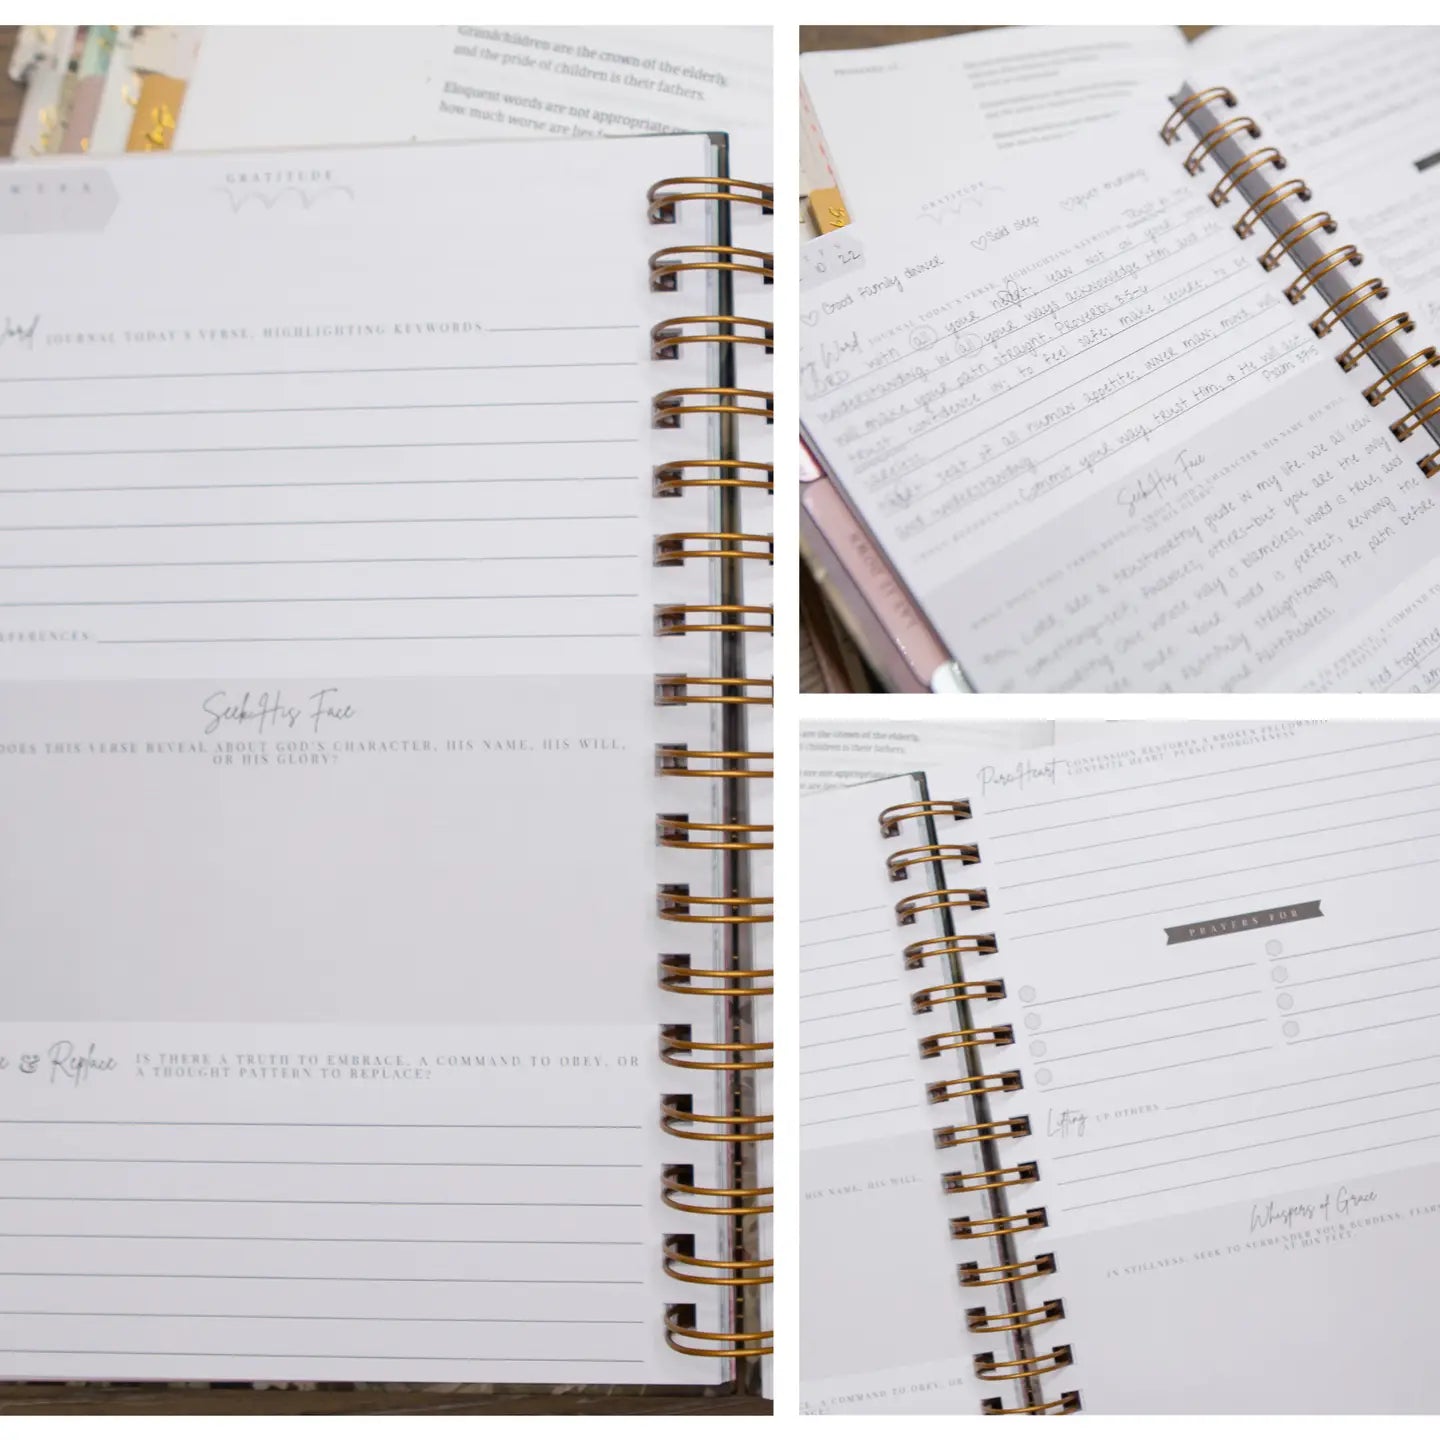 Grandchildren are the crown of the elderly,
and the pride of children is their fathers.
Eloquent words are not appropriate
how much worse are lies
WEEK
GRATITUDE
Word JOURNAL TODAY'S VERSE, HIGHLIGHTING KEYWORDS
REFERENCES:
Seek His Face
DOES THIS VERSE REVEAL ABOUT GOD'S CHARACTER, HIS NAME, HIS WILL,
OR HIS GLORY?
& Replace IS THERE A TRUTH TO EMBRACE, A COMMAND TO OBEY, OR
A THOUGHT PATTERN TO REPLACE?
PROVERBS
GRATITUDE
10 22
Good Family dinner
Solid sleep
Quiet morning
Word JOURNAL TODAY'S VERSE, HIGHLIGHTING KEYWORDS Trust in the
LORD with all your heart, lean not on your own
understanding, in all your ways acknowledge Him and He
will make your path straight. Proverbs 3:5-6
trust: confidence in; to feel safe; make secure, to be
careless
heart: seat of all human appetite; inner man; mind, will,
and understanding
CROSS REFERENCES: Commit your way, trust Him, & He will act
Psalm 37:5
Seek His Face
WHAT DOES THIS VERSE REVEAL ABOUT GOD'S CHARACTER, HIS NAME, HIS WILL,
OR HIS GLORY?
You, Lord, are a trustworthy guide in my life. We all lean
on something-self, finances, others-but you are the only
guiding One whose way is blameless, word is true, and
Your word is perfect, reviving the
faithfully straightening the path before
and faithfulness.
LAY IT DOWN
COMMAND TO
tied together
are the crown of the elderly,
children is their fathers.
are not appropriate
Pure Heart CONFESSION RESTORES A BROKEN FELLOWSHIP
CONTRITE HEART PURSUE FORGIVENESS
PRAYERS FOR
Lifting UP OTHERS
HIS NAME, HIS WILL,
Whispers of Grace
IN STILLNESS, SEEK TO SURRENDER YOUR BURDENS, FEARS
AT HIS FEET.
A COMMAND TO OBEY, OR